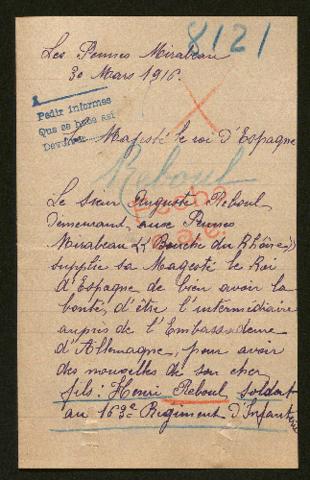 8121
Les Pennes Mirabeau
30 Mars 1916.
Pedir informes
Que se hace así
Majesté le roi d'Espagne
Reboul
Le sieur Auguste Reboul
demeurant aux Pennes
Mirabeau (Bouche du Rhône)
supplie sa Magesté le Roi
d'Espagne de bien avoir la
bonté, d'être l'intermédiaire
auprès de l'Embassadeur
d'Allemagne, pour avoir
des nouvelles de son cher
fils: Henri Reboul Soldat
au 163e Régiment d'Infanterie